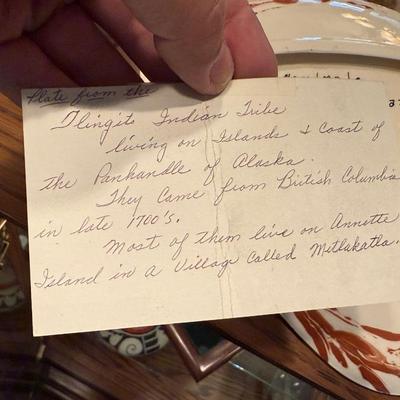 Plate from the
Tlingits Indian Tribe
living on Islands & Coast of
the Panhandle of Alaska.
They Came from British Columbia
in late 1700's.
Most of them live on Annette
Island in a Village Called Metlakatla.